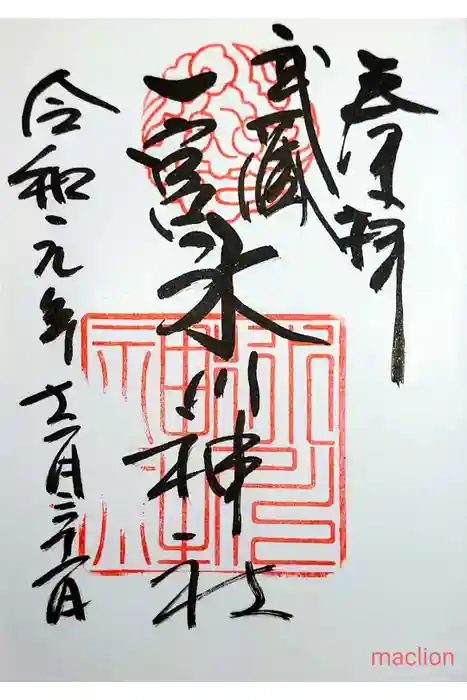 奉拝
武蔵
一宮
氷川神社
令和元年
氷川
神社
maclion